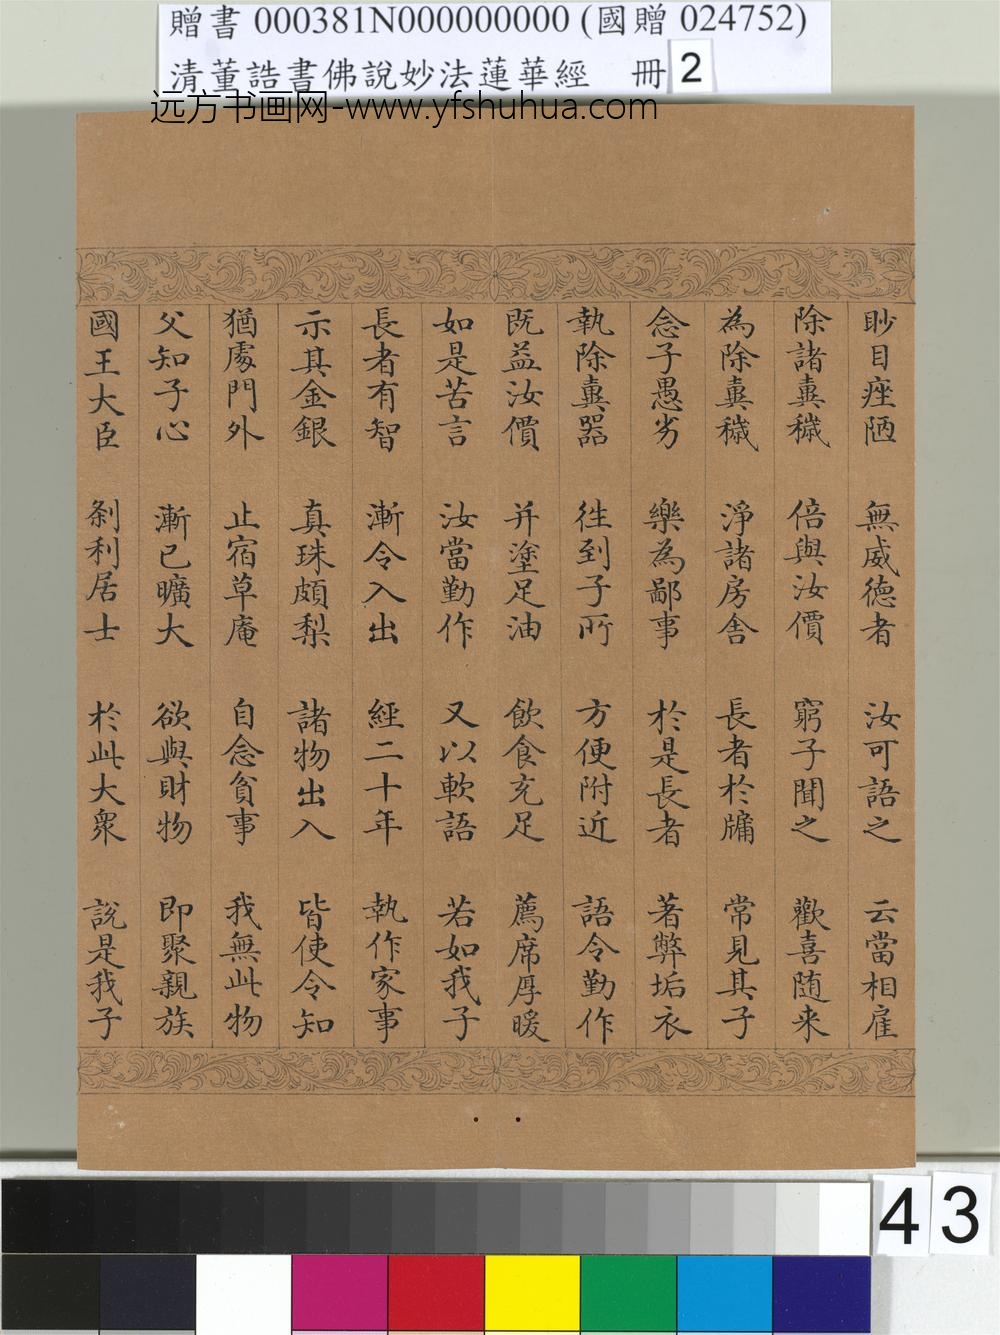 贈書 000381N000000000 (國贈 024752)
清董誥書佛說妙法蓮華經 冊 2
远方书画网-www.yfshuhua.com
眇目痤陋 無威德者 汝可語之 云當相雇
除諸糞穢 倍與汝價 窮子聞之 歡喜随来
為除糞穢 淨諸房舍 長者於牖 常見其子
念子愚劣 樂為鄙事 於是長者 著弊垢衣
執除糞器 徃到子所 方便附近 語令勤作
既益汝價 并塗足油 飲食充足 薦席厚暖
如是苦言 汝當勤作 又以軟語 若如我子
長者有智 漸令入出 經二十年 執作家事
示其金銀 真珠頗梨 諸物出入 皆使令知
猶處門外 止宿草庵 自念貧事 我無此物
父知子心 漸已曠大 欲與財物 即聚親族
國王大臣 剎利居士 於此大眾 說是我子
43